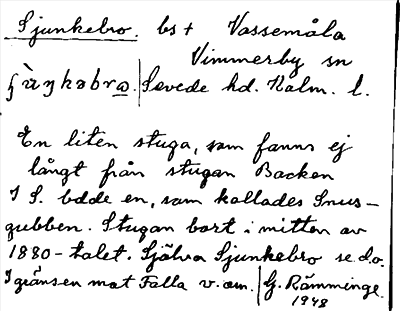 Sjunkebro. bst Vassemåla
Vimmerby sn
ʃùŋkəbrɷ. Sevede hd. Kalm. l.
En liten stuga, som fanns ej
långt från stugan Backen
I S. bdde en, som kallades Snus-
gubben. Stugan bort i mitten av
1880-talet. Själva Sjunkebro se d.o.
I gränsen mot Falla v. om. G. Rämminge.
1948